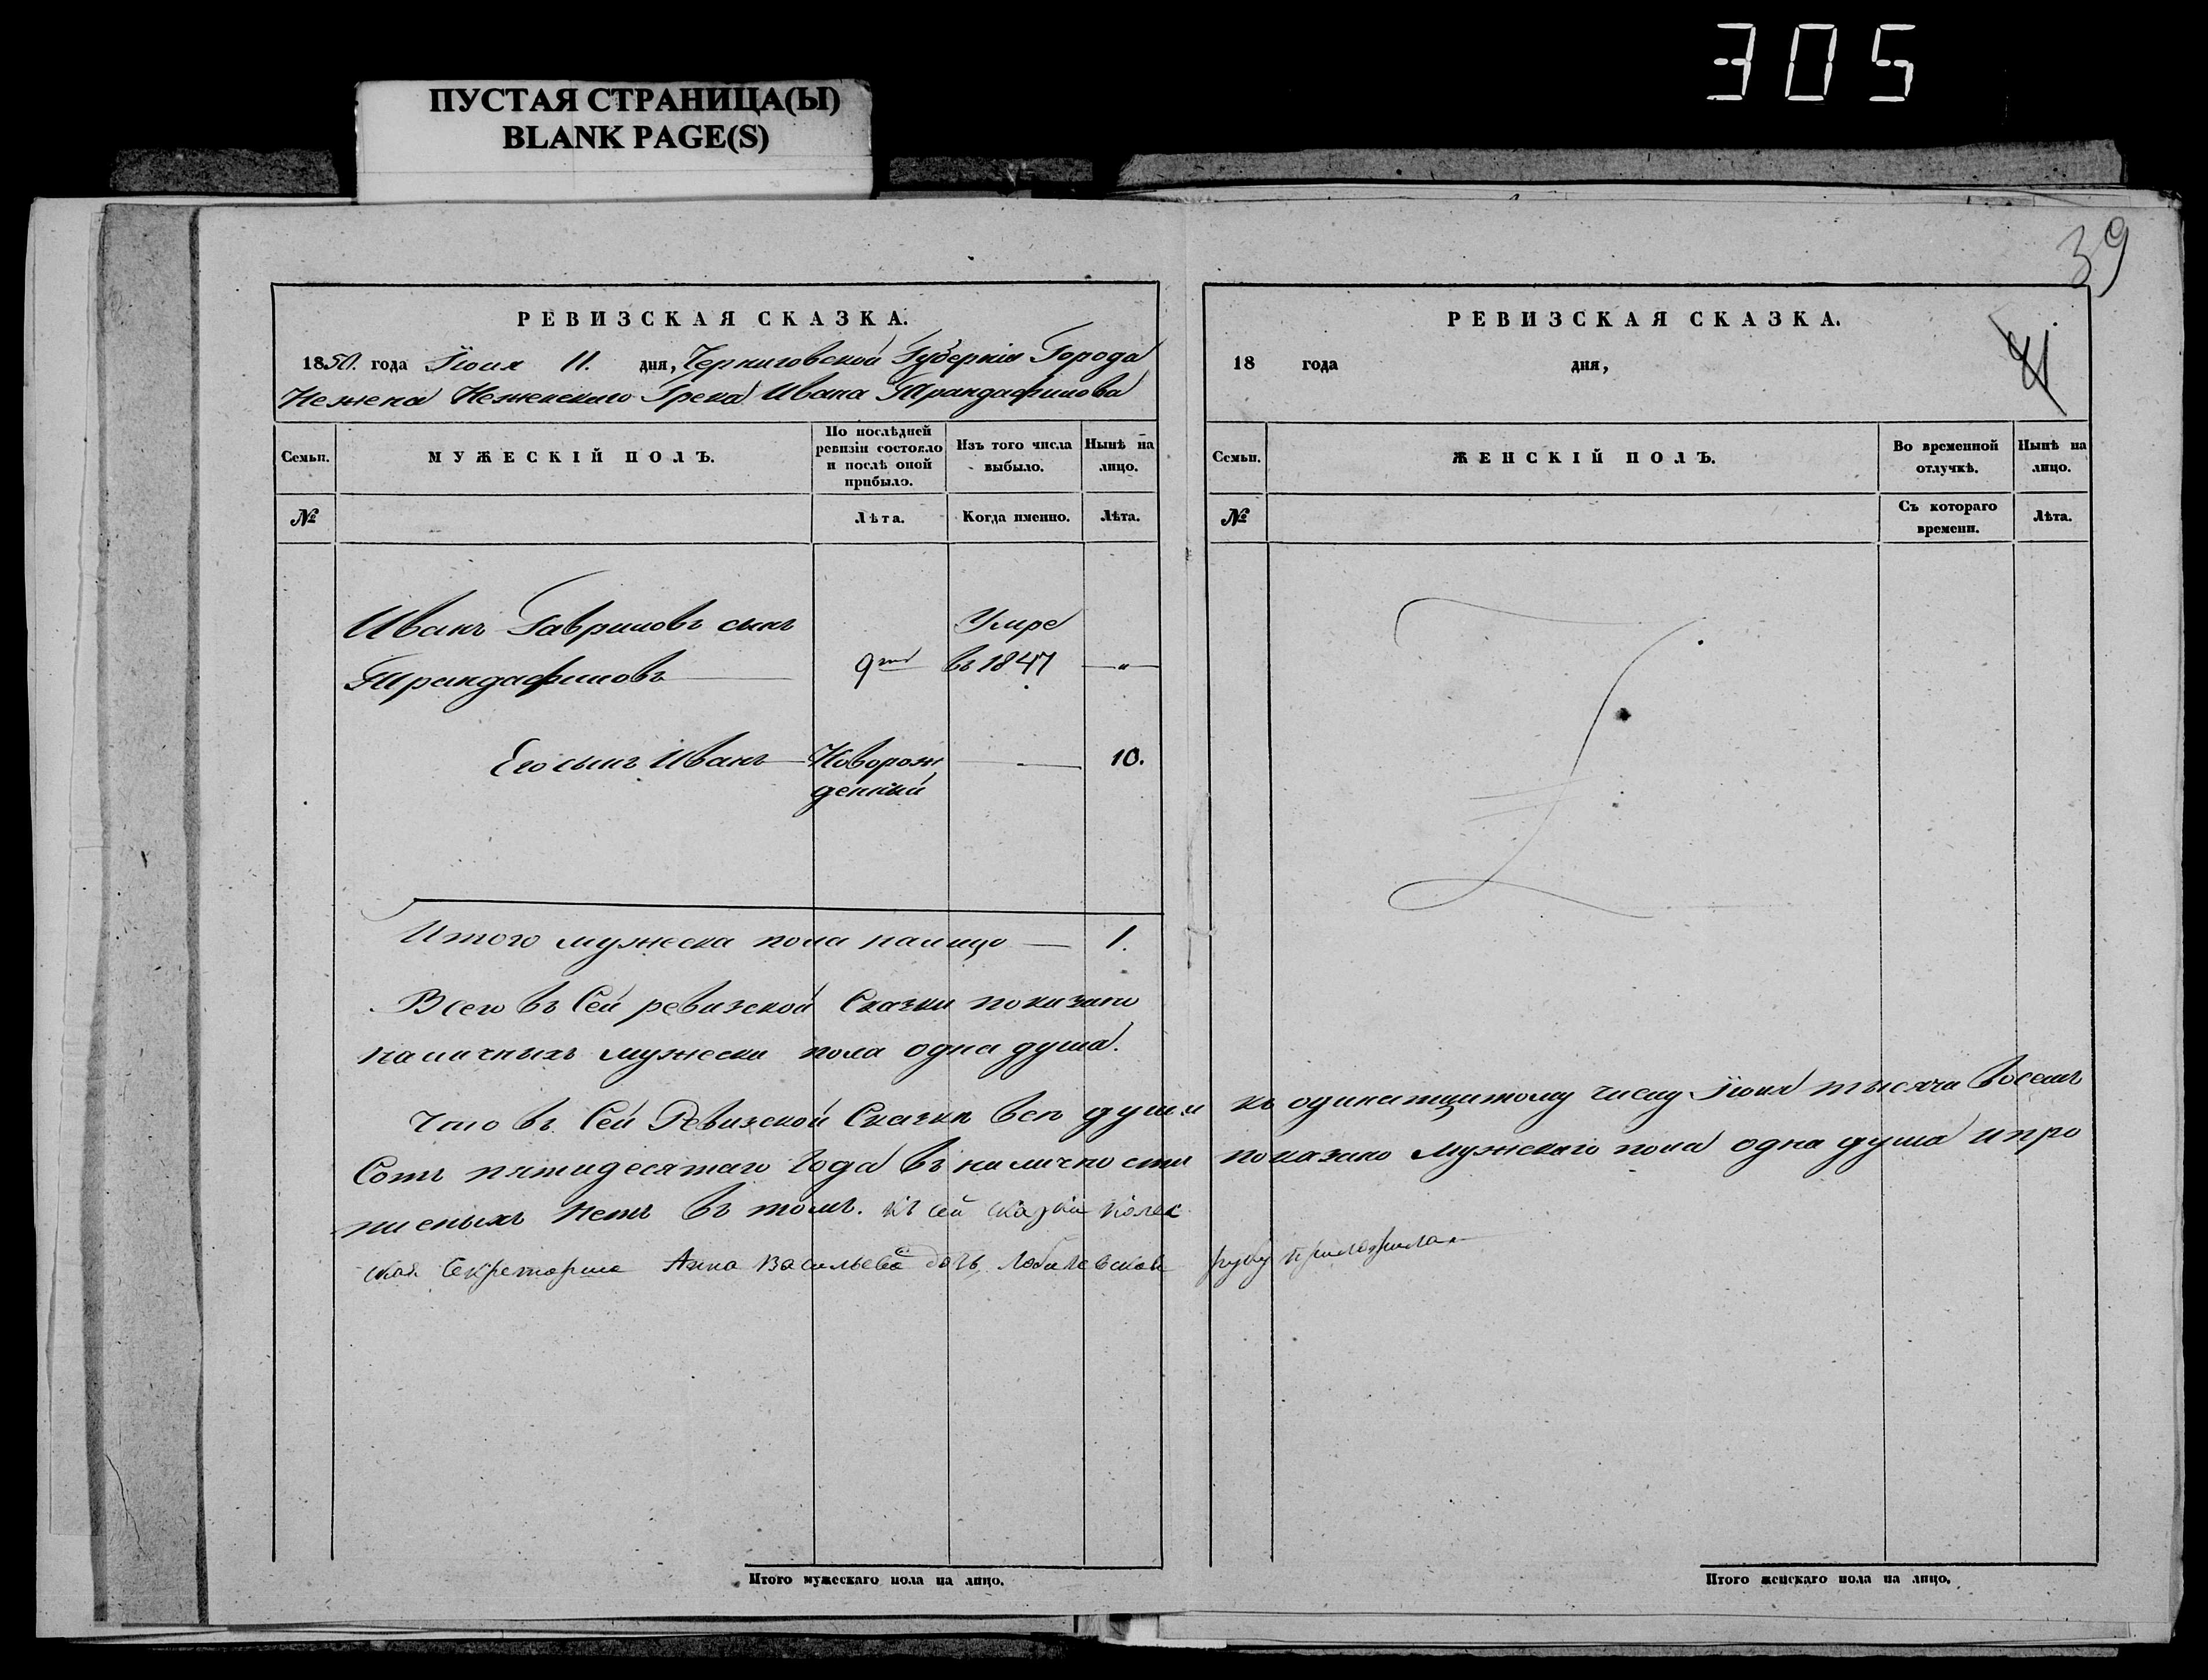 305
ПУСТАЯ СТРАНИЦА(Ы)
BLANK PAGE(S)
39
РЕВИЗСКАЯ СКАЗКА.
1850. года Іюня 11. дня, Черниговской Губерніи Города
Нежена Неженскаго Грека Ивана Трандафилова
Семьи.
МУЖЕСКІЙ ПОЛЪ.
По послѣдней ревизіи состояло и послѣ оной прибыло.
Изъ того числа выбыло.
Нынѣ на лицо.
№
Лѣта.
Когда именно.
Лѣта.
Иванъ Гавриловъ сынъ Умре
Трандафиловъ 9 въ 1847 — „ —
Его сынъ Иванъ — Новорож — 10.
денный
Итого мужеска пола налицо — 1.
Всего въ Сей ревизской Сказки показано
наличныхъ мужеска пола одна душа.
Что въ Сей Ревизской Сказкѣ всѣ души къ одинатцатому числу Іюня тысяча восемъ
Сотъ пятидесятаго Года въ наличности показано Мужскаго пола одна душа и про
писныхъ Нетъ въ томъ. Къ сей сказки колеж
ская Секретарша Анна Васильева дочь руку приложила
Итого мужескаго пола на лицо.
РЕВИЗСКАЯ СКАЗКА.
18 года дня,
41
Семьи.
ЖЕНСКІЙ ПОЛЪ.
Во временной отлучкѣ.
Нынѣ на лицо.
№
Съ котораго времени.
Лѣта.
Итого женскаго пола на лицо.